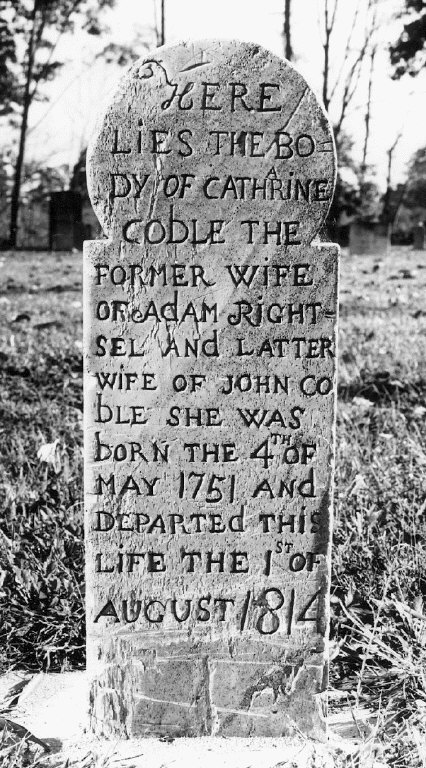 HERE
LIES THE BO=
DY OF CATHRINE
COblE THE
FORMER WIFE
OF ADAM RIGHT-
SEL AND LATTER
WIFE OF JOHN CO
blE SHE WAS
bORN THE 4TH OF
MAY 1751 AND
DEPARTEd THIS
LiFE THE 1ST OF
AUGUST 1814